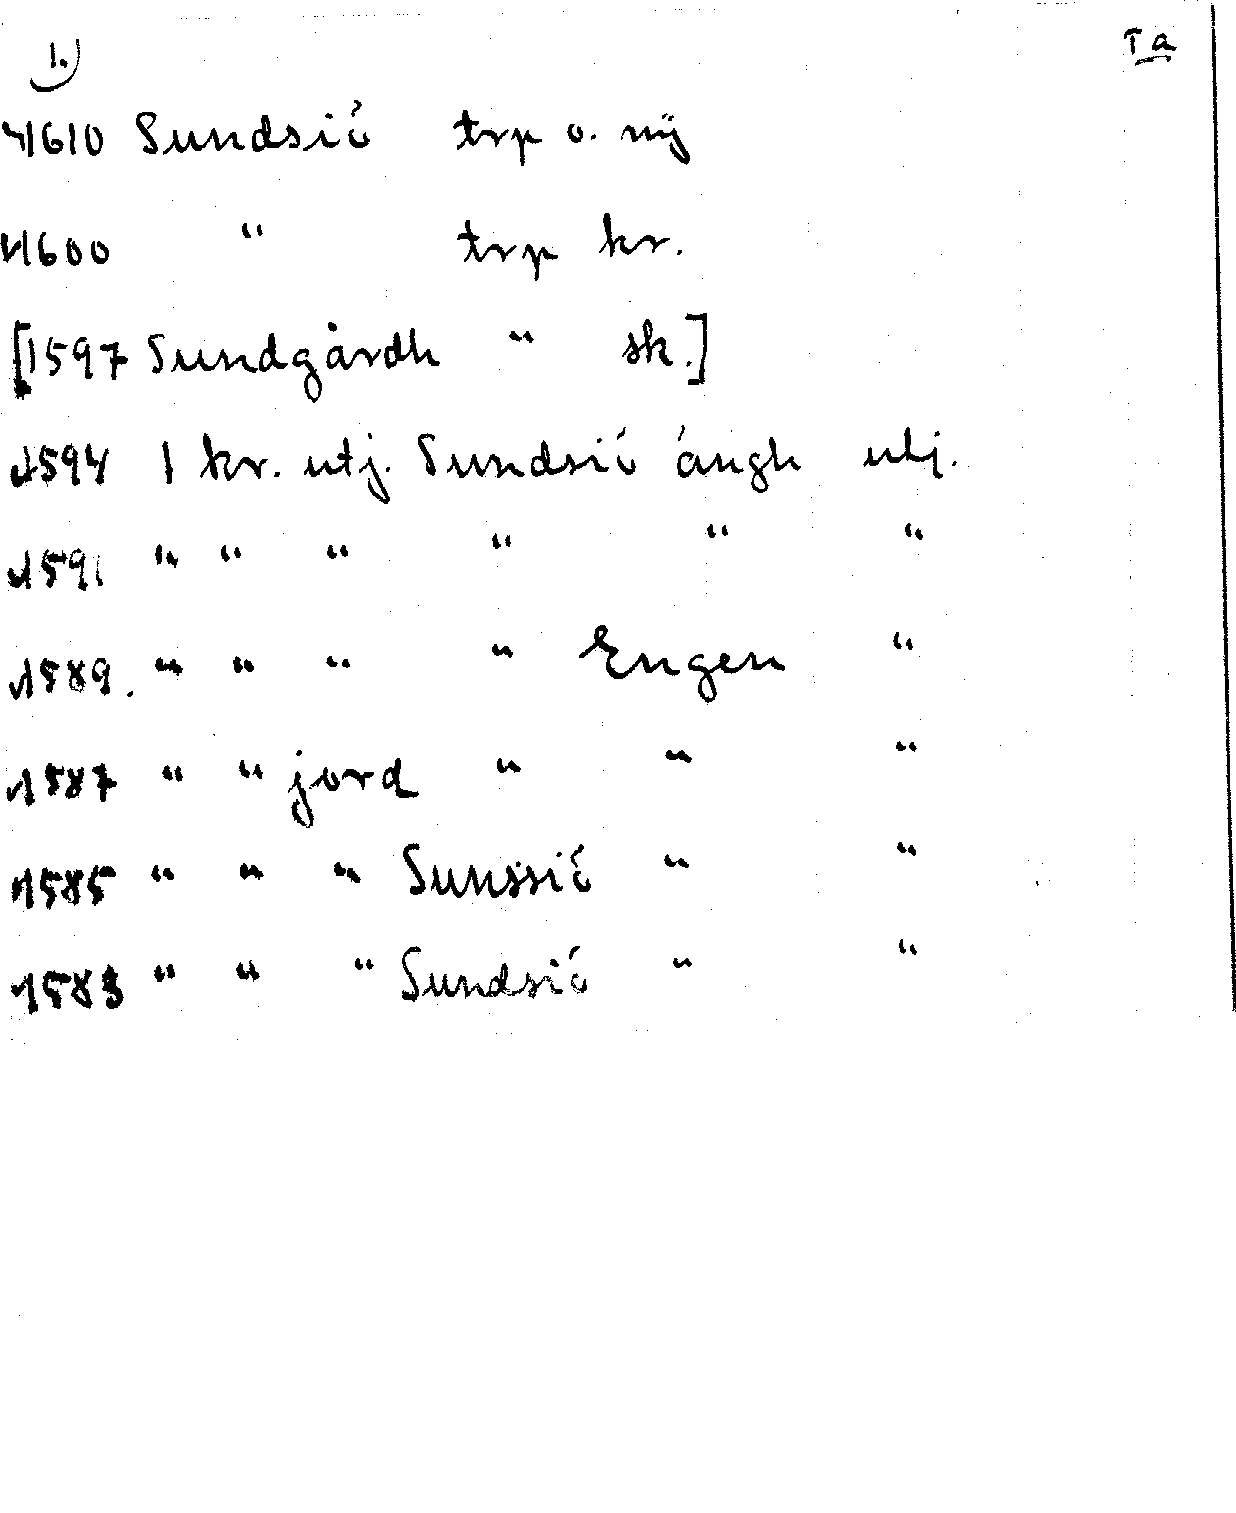 1.) Ta
1610 Sundsió trp o. nÿ
1600 " trp kr.
[1597 Sundgårdh " sk.]
1594 1 kr. utj. Sundsió ángh utj.
1591 " " " " " "
1589. " " " " Engen "
1587 " " jord " " "
1585 " " " Sunssió " "
1583 " " " Sundsió " "